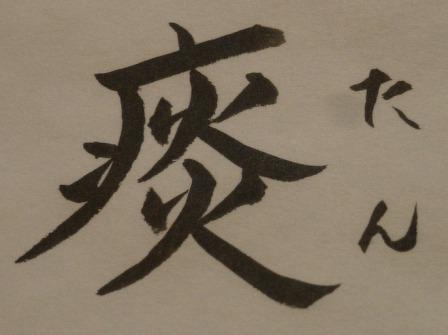 痰
たん